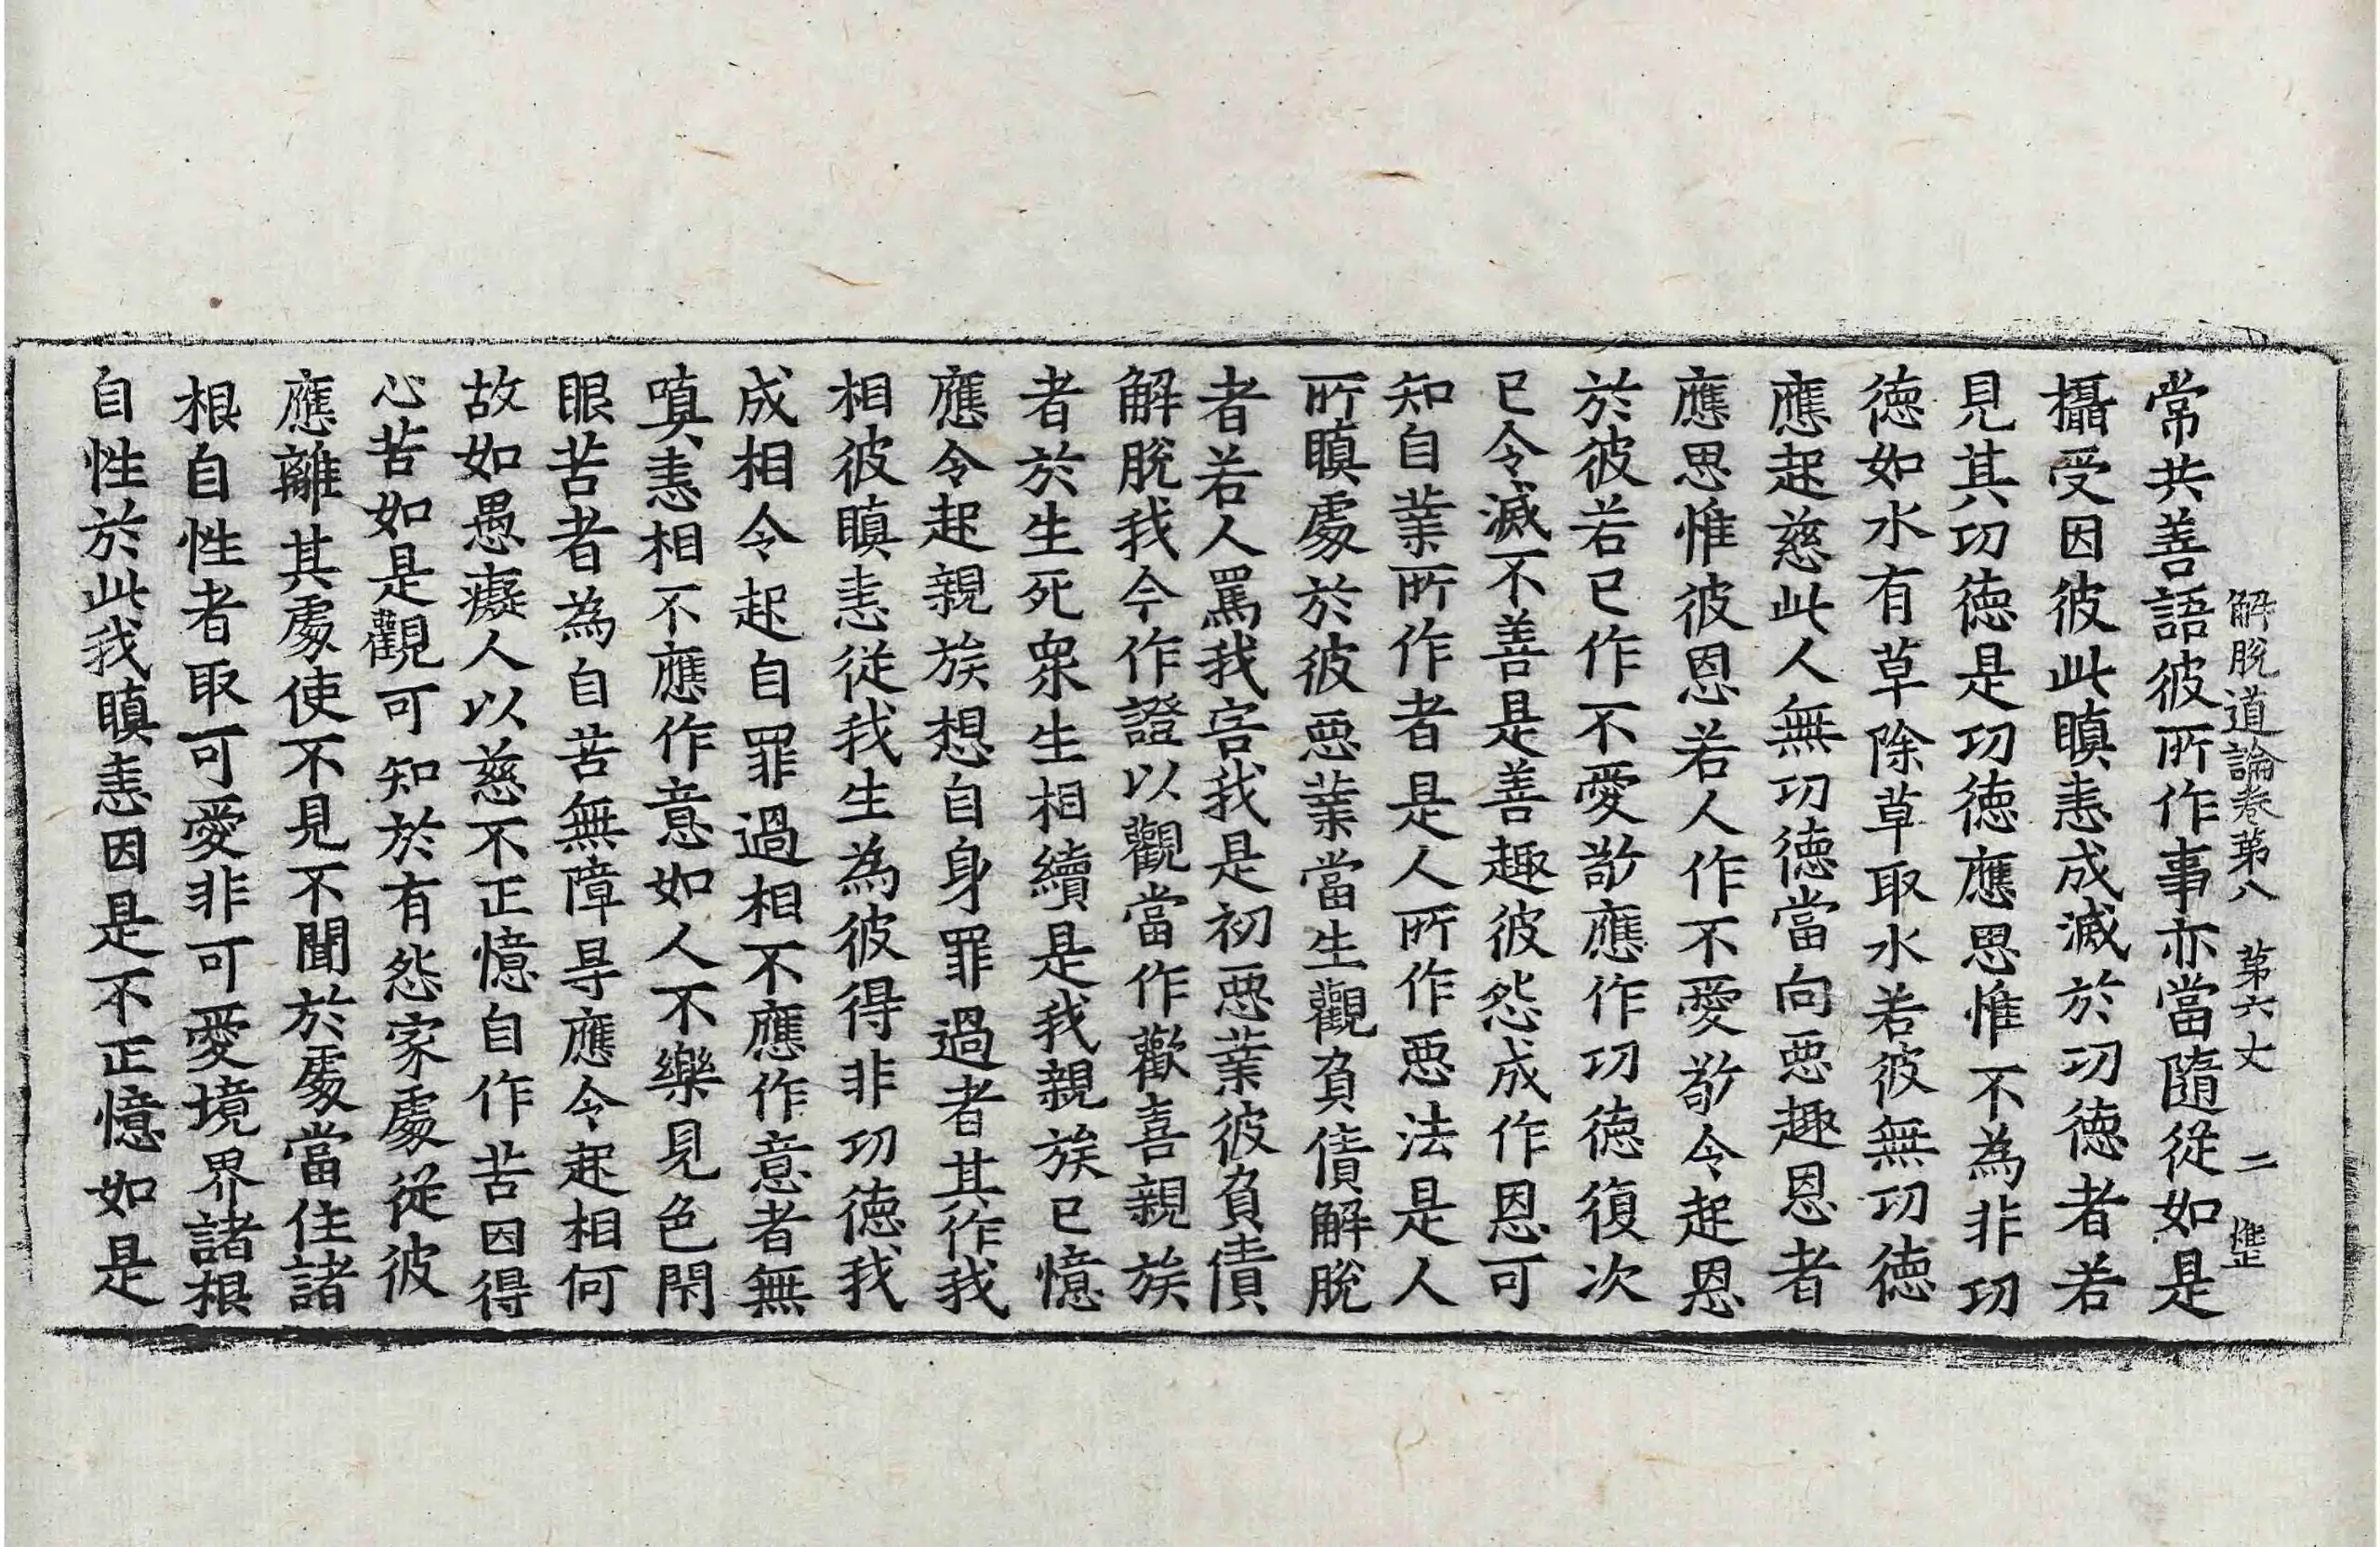 解脫道論卷第八 第六丈 二
常共善語彼所作事亦當隨從如是
攝受因彼此瞋恚成滅於功德者若
見其功德是功德應思惟不為非功
德如水有草除草取水若彼無功德
應起慈此人無功德當向惡趣恩者
應思惟彼恩若人作不愛敬令起恩
於彼若已作不愛敬應作功德復次
已令滅不善是善趣彼怨成作恩可
知自業所作者是人所作惡法是人
所瞋處於彼惡業當生觀負債解脫
者若人罵我害我是初惡業彼負債
解脫我今作證以觀當作歡喜親族
者於生死衆生相續是我親族已憶
應令起親族想自身罪過者其作我
相彼瞋恚從我生為彼得非功德我
成相令起自罪過相不應作意者無
嗔恚相不應作意如人不樂見色閇
眼苦者為自苦無障㝵應令起相何
故如愚癡人以慈不正憶自作苦因得
心苦如是觀可知於有怨家處從彼
應離其處使不見不聞於處當住諸
根自性者取可愛非可愛境界諸根
自性於此我瞋恚因是不正憶如是